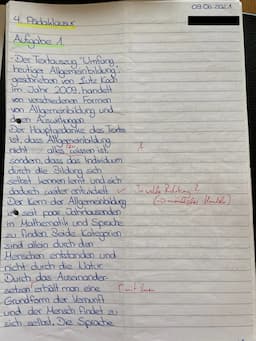 09.06.2021
4. Pädaklausur
Aufgabe 1
Der Textauszug "Umfang
heutiger Allgemeinbildung",
geschrieben von Lutz Koch
im Jahr 2009, handelt
von verschiedenen Formen
von Allgemeinbildung und
deren Auswirkungen.
Der Hauptgedanke des Textes
ist, dass Allgemeinbildung
nicht alles wissen ist,
sondern, dass das Individuum
durch die Bildung sich
selbst kennen lernt und sich
dadurch weiter entwickelt. ✓ In welche Richtung?
Der Kern der Allgemeinbildung
ist seit paar Jahrtausenden
in Mathematik und Sprache
zu finden. Beide Kategorien
sind allein durch den
Menschen entstanden und
nicht durch die Natur.
Durch das Auseinander-
setzen erhält man eine
Grundform der Vernunft
und der Mensch findet zu
sich selbst. Die Sprache